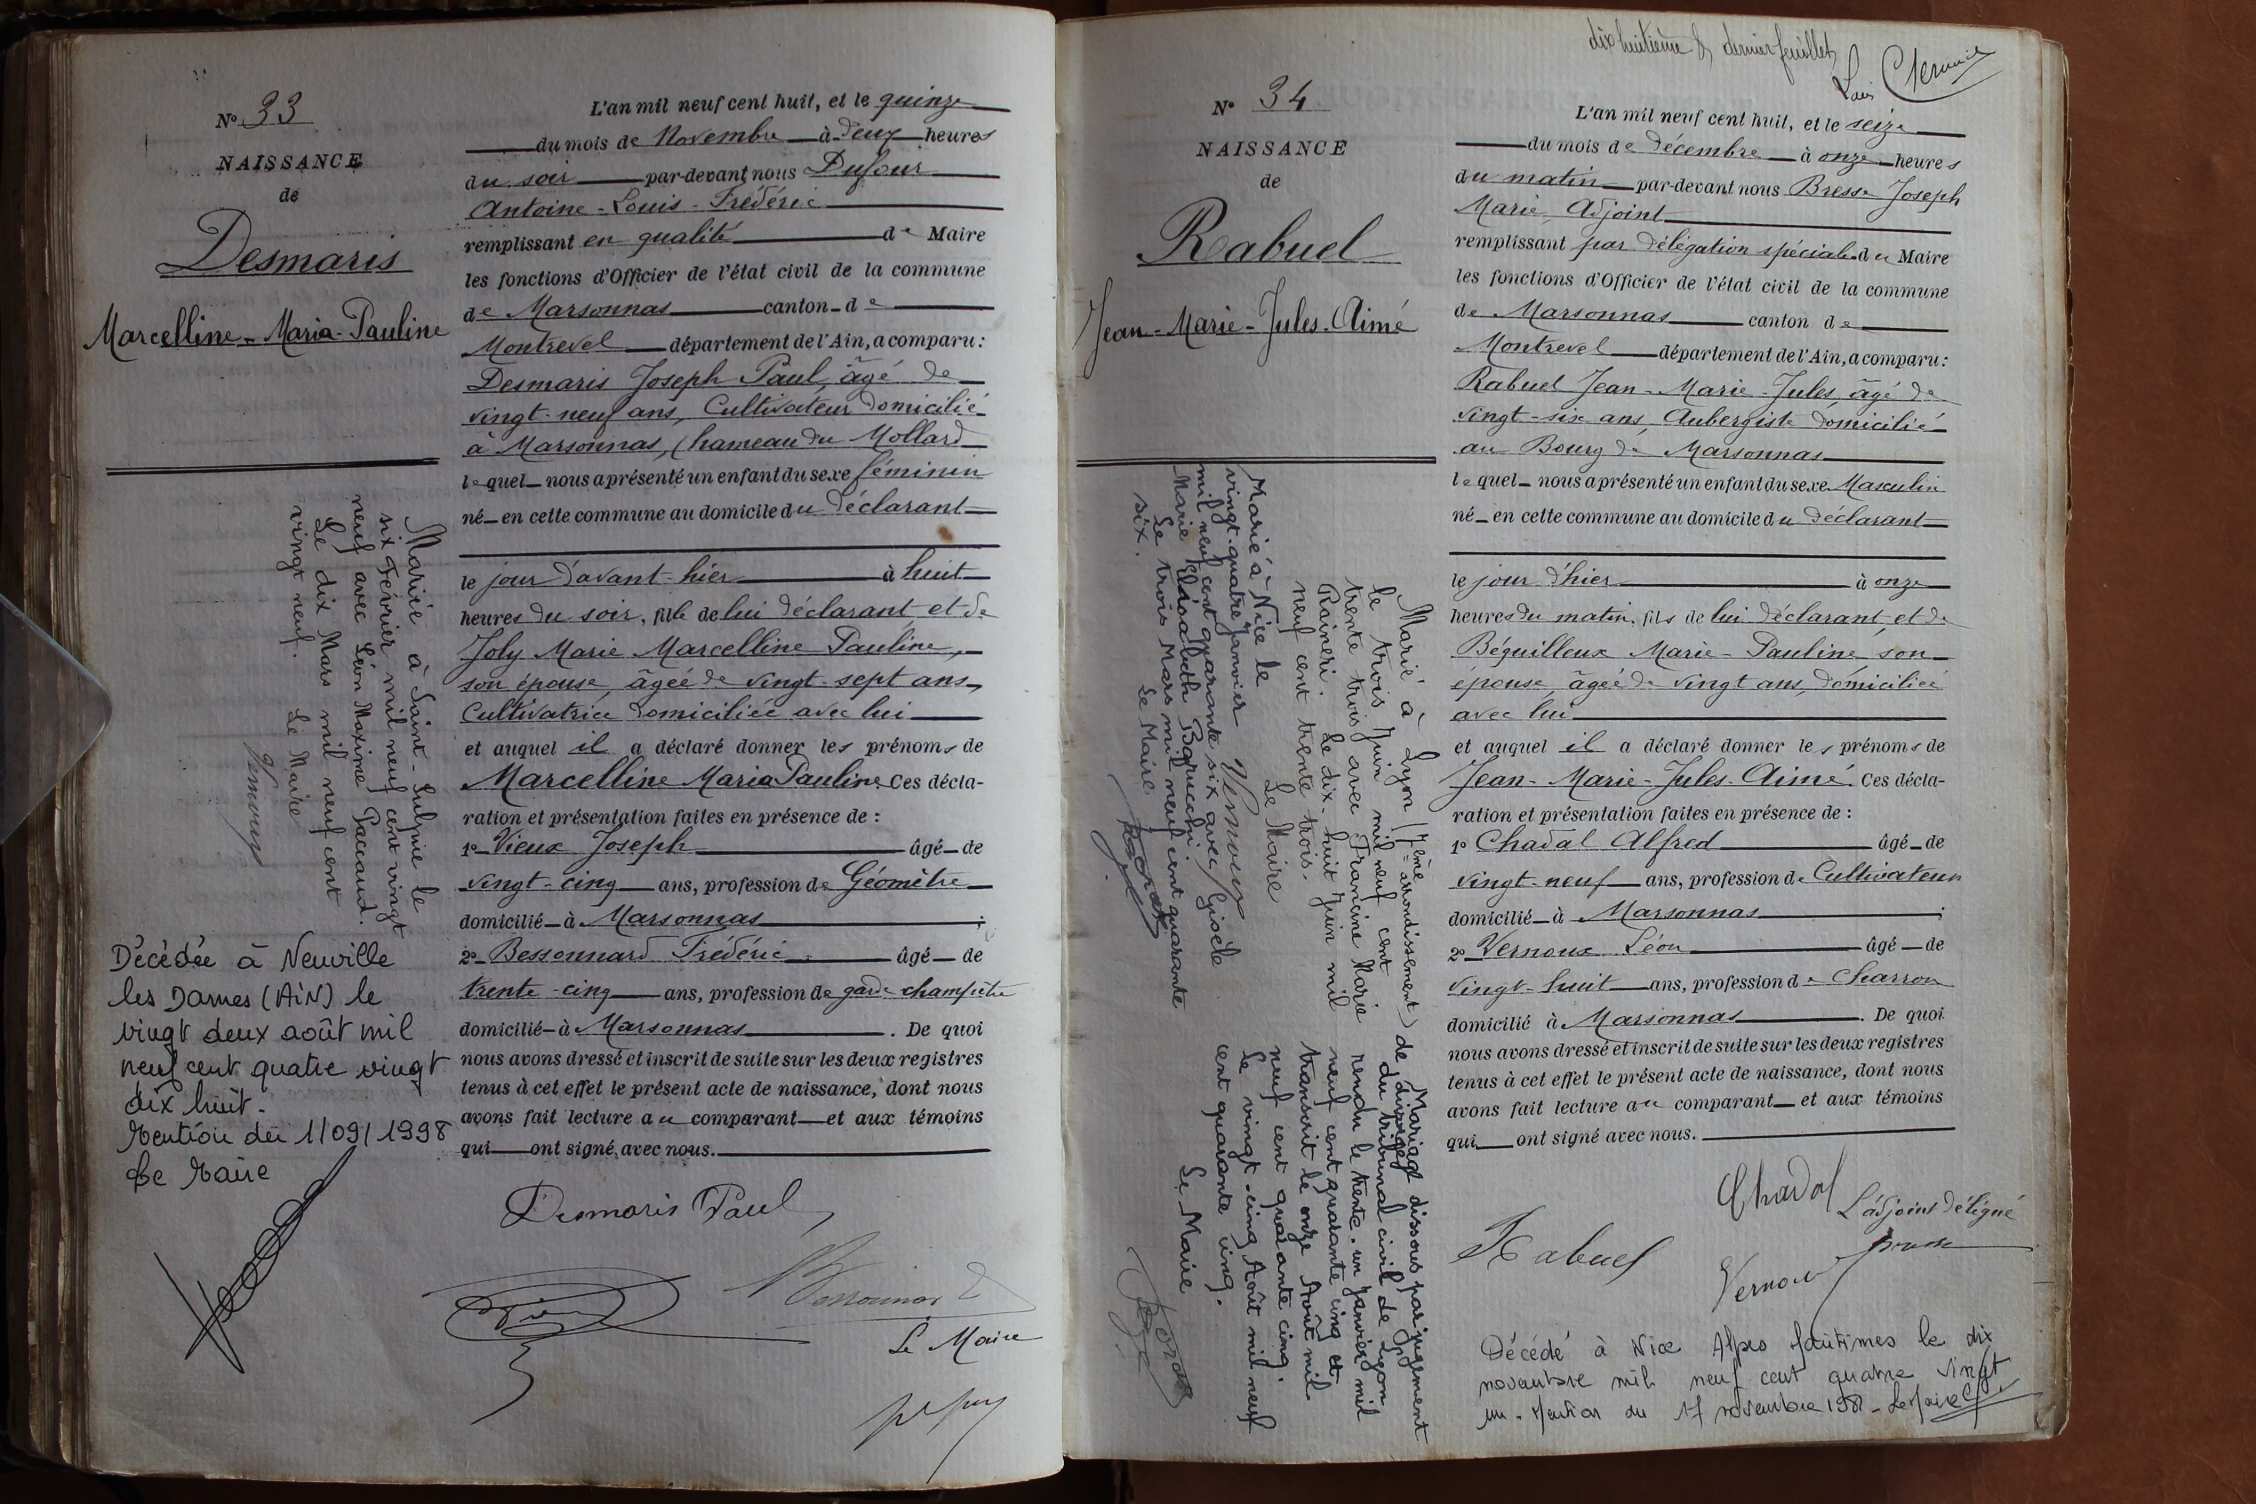 N° 33
NAISSANCE
de
Desmaris
Marcelline - Maria - Pauline
Mariée à Saint-Sulpice le
six Février mil neuf cent vingt
neuf avec Léon Maxime Paccaud.
Le dix Mars mil neuf cent
vingt neuf. Le Maire
Décédée à Neuville
les Dames (AiN) le
vingt deux août mil
neuf cent quatre vingt
dix huit.
Mention du 1/09/1998
Le Maire
L'an mil neuf cent huit, et le quinze
du mois de Novembre à deux heures
du soir par-devant nous Dufour
Antoine - Louis - Frédéric
remplissant en qualité de Maire
les fonctions d'Officier de l'état civil de la commune
de Marsonnas canton de
Montrevel département de l'Ain, a comparu :
Desmaris Joseph Paul, âgé de
vingt-neuf ans, Cultivateur domicilié
à Marsonnas, hameau du Mollard
lequel nous a présenté un enfant du sexe féminin
né en cette commune au domicile du déclarant
le jour d'avant-hier à huit
heures du soir, fille de lui déclarant et de
Joly Marie Marcelline Pauline,
son épouse, âgée de vingt-sept ans,
Cultivatrice domiciliée avec lui
et auquel il a déclaré donner les prénoms de
Marcelline Maria Pauline. Ces décla-
ration et présentation faites en présence de :
1° Vieux Joseph âgé de
vingt-cinq ans, profession de Géomètre
domicilié à Marsonnas ;
2° Bessonnard Frédéric âgé de
trente-cinq ans, profession de garde-champêtre
domicilié à Marsonnas. De quoi
nous avons dressé et inscrit de suite sur les deux registres
tenus à cet effet le présent acte de naissance, dont nous
avons fait lecture au comparant et aux témoins
qui ont signé avec nous.
Desmaris Paul
Le Maire
dix huitième & dernier feuillet
N° 34
NAISSANCE
de
Rabuel
Jean - Marie - Jules - Aimé
Marié à Lyon (7ème arrondissement)
le trois Juin mil neuf cent
trente trois avec Francine Marie
Raineri. Le dix-huit Juin mil
neuf cent trente trois.
Le Maire
Marié à Nice le
vingt-quatre Janvier
mil neuf cent quarante six avec Gisèle
Le trois Mars mil neuf cent quarante
six. Le Maire
Mariage dissous par jugement
de divorce
du tribunal civil de Lyon
rendu le trente-un Janvier mil
neuf cent quarante cinq et
transcrit le onze Août mil
neuf cent quarante cinq.
Le vingt-cinq Août mil neuf
cent quarante cinq.
Le Maire
L'an mil neuf cent huit, et le seize
du mois de décembre à onze heures
du matin par-devant nous Bresse Joseph
Marie, Adjoint
remplissant par délégation spéciale du Maire
les fonctions d'Officier de l'état civil de la commune
de Marsonnas canton de
Montrevel département de l'Ain, a comparu :
Rabuel Jean - Marie - Jules, âgé de
vingt-six ans, Aubergiste domicilié
au Bourg de Marsonnas
lequel nous a présenté un enfant du sexe Masculin
né en cette commune au domicile du déclarant
le jour d'hier à onze
heures du matin, fils de lui déclarant, et de
Béguilleux Marie - Pauline son
épouse âgée de vingt ans, domiciliée
avec lui
et auquel il a déclaré donner les prénoms de
Jean - Marie - Jules - Aimé. Ces décla-
ration et présentation faites en présence de :
1° Chadal Alfred âgé de
vingt-neuf ans, profession de Cultivateur
domicilié à Marsonnas ;
2° Vernoux Léon âgé de
vingt-huit ans, profession de Charron
domicilié à Marsonnas. De quoi
nous avons dressé et inscrit de suite sur les deux registres
tenus à cet effet le présent acte de naissance, dont nous
avons fait lecture au comparant et aux témoins
qui ont signé avec nous.
Chadal
L'adjoint délégué
Rabuel
Vernoux
Décédé à Nice Alpes Maritimes le dix
novembre mil neuf cent quatre vingt
un. Mention du 17 novembre 1981 - Le Maire